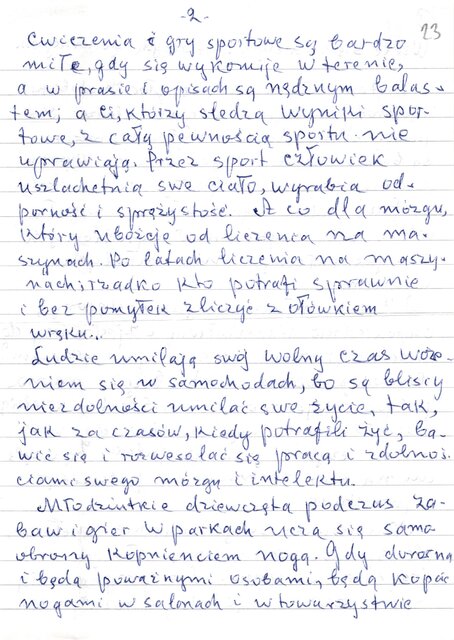 -2-
23
Ćwiczenia i gry sportowe są bardzo
miłe, gdy się wykonuje w terenie,
a w prasie i opisach są nędznym balas-
tem; a ci, którzy śledzą wyniki spor-
towe, z całą pewnością sportu nie
uprawiają. Przez sport człowiek
uszlachetnia swe ciało, wyrabia od-
porność i sprężystość. A co dla mózgu,
który ubożeje od liczenia na ma-
szynach. Po latach liczenia na maszy-
nach; rzadko kto potrafi sprawnie
i bez pomyłek zliczyć z ołówkiem
w ręku...
Ludzie umilają swój wolny czas woże-
niem się w samochodach, bo są bliscy
niezdolności umilać swe życie, tak,
jak za czasów, kiedy potrafili żyć, ba-
wić się i rozweselać się pracą i zdolnoś-
ciami swego mózgu i intelektu.
Młodziutkie dziewczęta podczas za-
baw i gier w parkach uczą się samo-
obrony kopnienciem nogą. Gdy dorosną
i będą poważnymi osobami, będą kopać
nogami w salonach i w towarzystwie